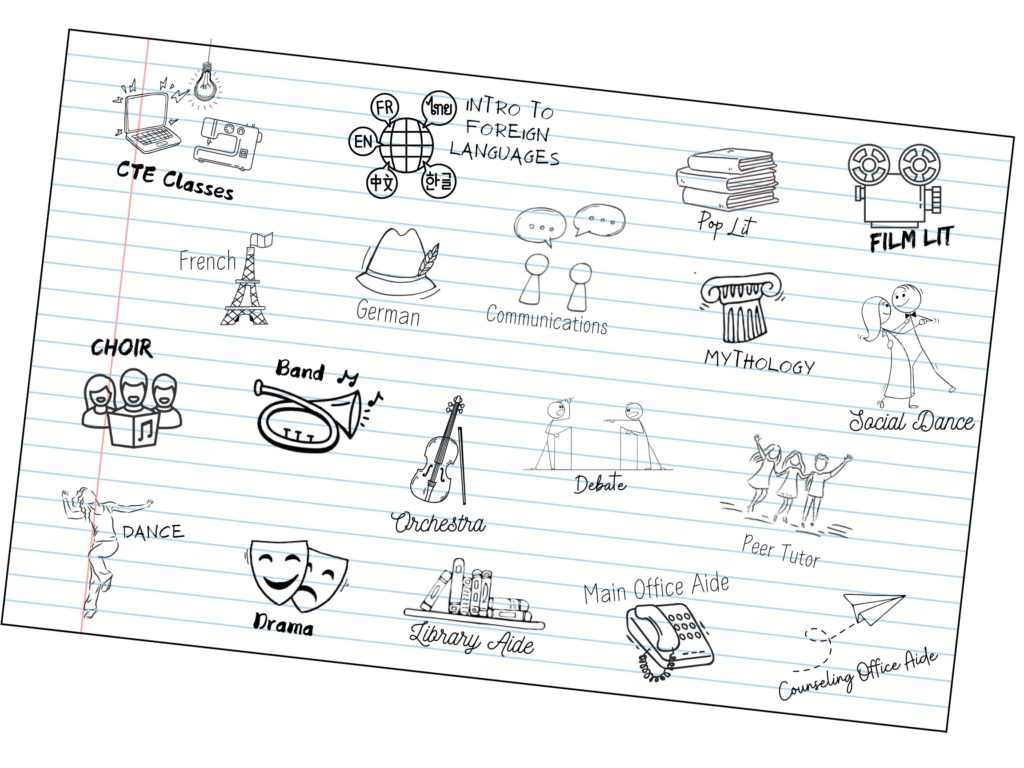 CTE Classes
FR
ไทย
EN
中文
한글
INTRO TO
FOREIGN
LANGUAGES
Pop Lit
FILM LIT
French
German
Communications
MYTHOLOGY
Social Dance
CHOIR
Band
Orchestra
Debate
Peer Tutor
DANCE
Drama
Library Aide
Main Office Aide
Counseling Office Aide